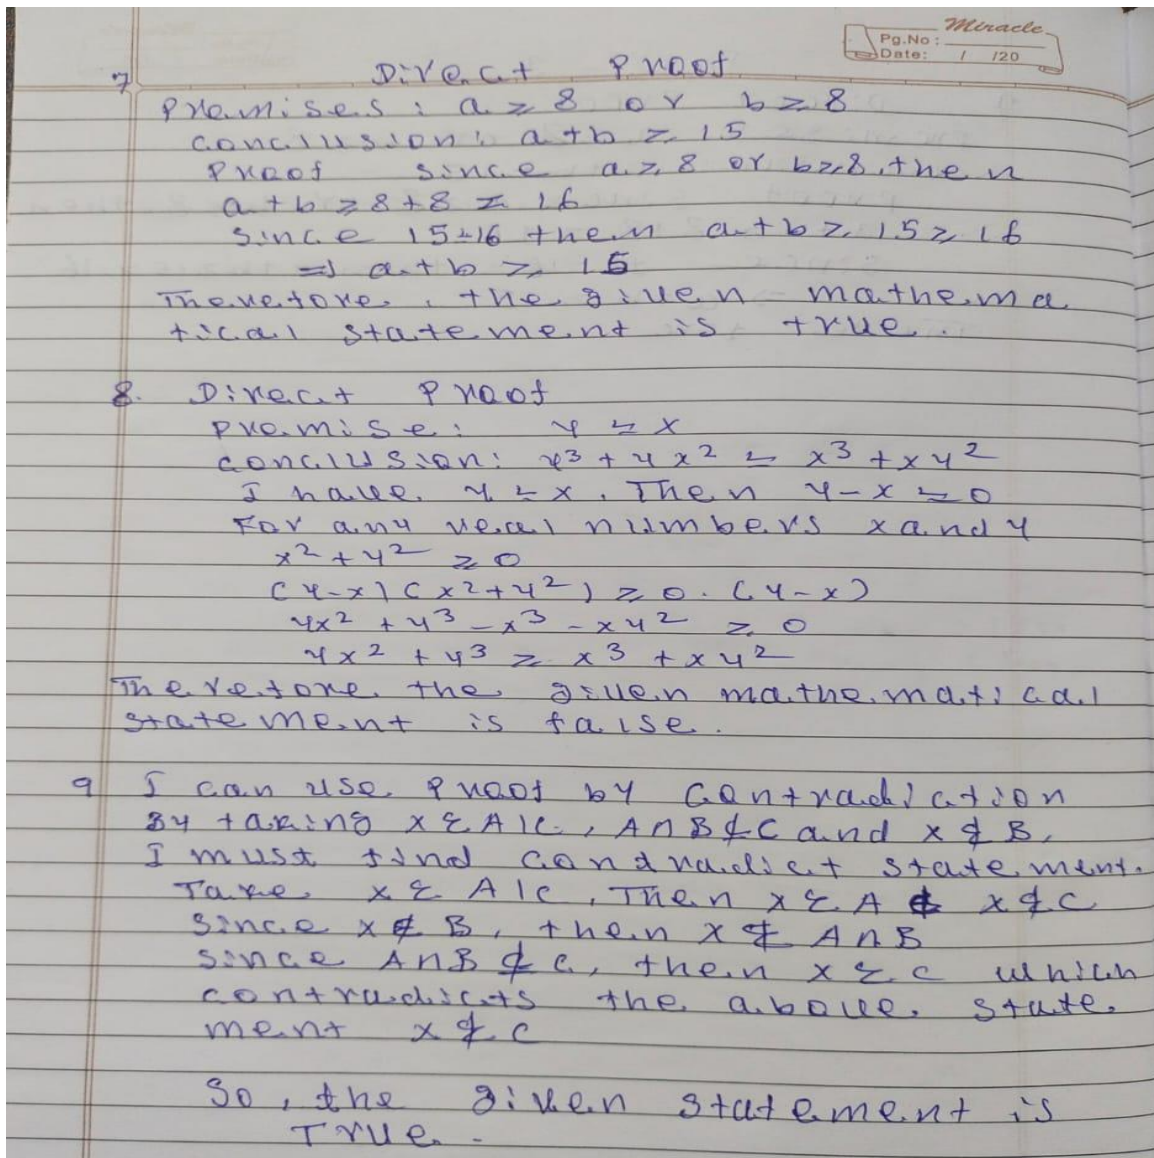 Miracle
Pg.No :
Date: / /20
7 Direct Proof
Premises : a ≥ 8 or b ≥ 8
conclusion: a+b ≥ 15
Proof since a ≥ 8 or b≥8, then
a+b ≥ 8+8 = 16
since 15≤16 then a+b ≥ 15 ≥ 16
=> a+b ≥ 15
Therefore, the given mathema
tical statement is true.
8. Direct Proof
Premise: y ≥ x
conclusion: y³ + yx² ≥ x³ + xy²
I have y ≥ x. Then y-x ≥ 0
For any real numbers x and y
x² + y² ≥ 0
(y-x) (x²+y²) ≥ 0. (y-x)
yx² + y³ - x³ - xy² ≥ 0
yx² + y³ ≥ x³ + xy²
Therefore the given mathematical
statement is false.
9 I can use Proof by Contradiction
By taking x ∈ A\C, A∩B⊄C and x ∉ B,
I must find contradict statement.
Take x ∈ A\C, Then x ∈ A x∉C
Since x ∉ B, then x ∉ A∩B
Since A∩B ⊄ C, then x ∈ C which
contradicts the above state
ment x ∉ C
So, the given statement is
True.